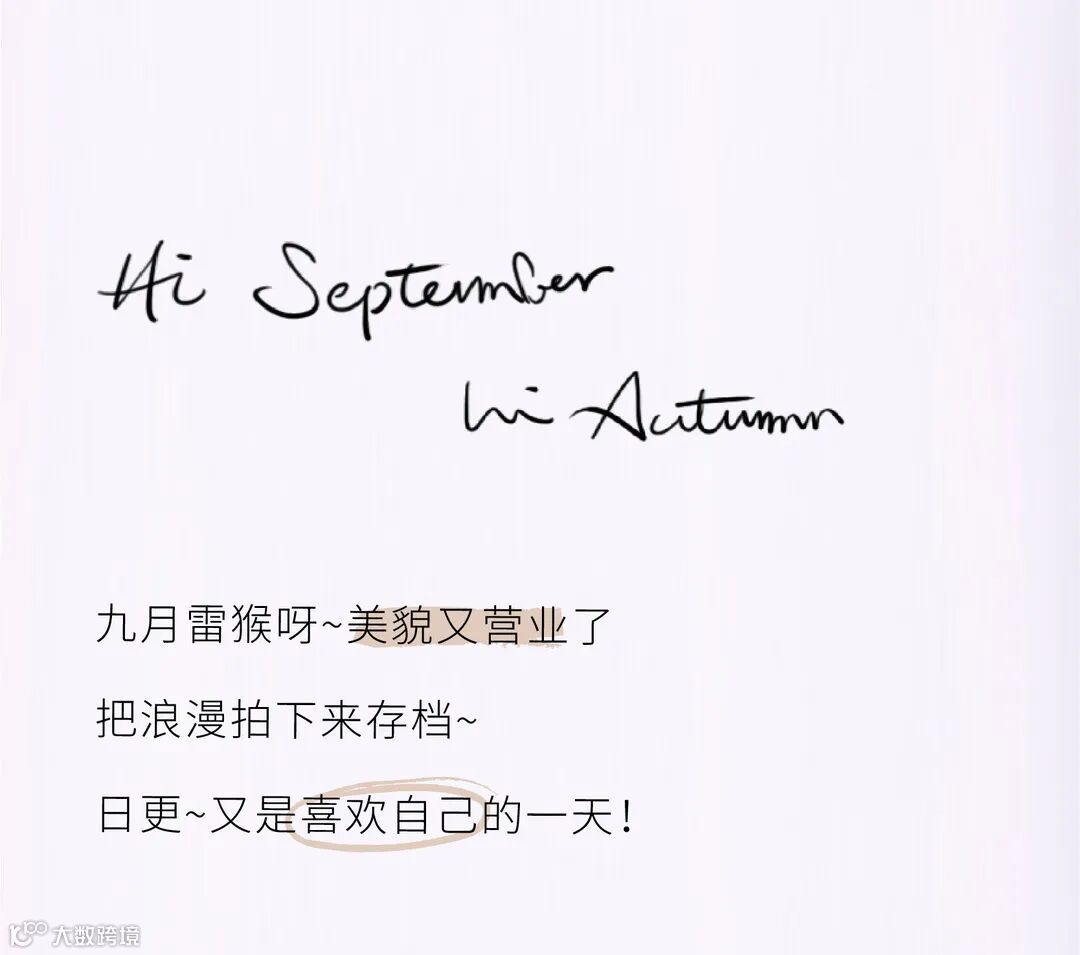 Hi September
hi Autumn
九月雷猴呀~美貌又营业了
把浪漫拍下来存档~
日更~又是喜欢自己的一天!
大数跨境